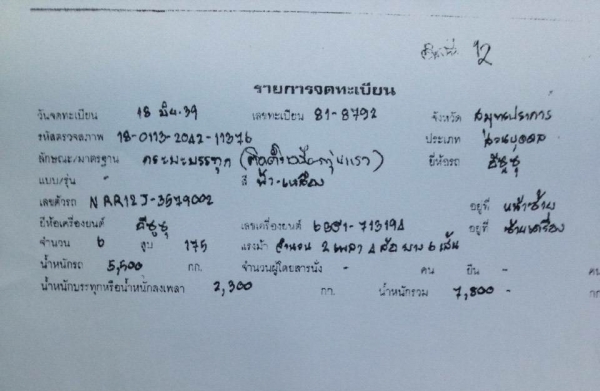 12
รายการจดทะเบียน
วันจดทะเบียน 18 มิย.39 เลขทะเบียน 81-8792 จังหวัด สมุทรปราการ
รหัสตรวจสภาพ 18-0113-2042-11376 ประเภท ส่วนบุคคล
ลักษณะ/มาตรฐาน กระบะบรรทุก ยี่ห้อรถ อีซูซุ
แบบ/รุ่น สี ฟ้า-เหลือง
เลขตัวรถ NRR12J-3579002 อยู่ที่ หน้าซ้าย
ยี่ห้อเครื่องยนต์ อีซูซุ เลขเครื่องยนต์ 6BG1-713194 อยู่ที่ ซ้ายเครื่อง
จำนวน 6 สูบ 175 แรงม้า จำนวน 2 เพลา 4 ล้อ ยาง 6 เส้น
น้ำหนักรถ 5,500 กก. จำนวนผู้โดยสารนั่ง - คน ยืน - คน
น้ำหนักบรรทุกหรือน้ำหนักลงเพลา 2,300 กก. น้ำหนักรวม 7,800 - กก